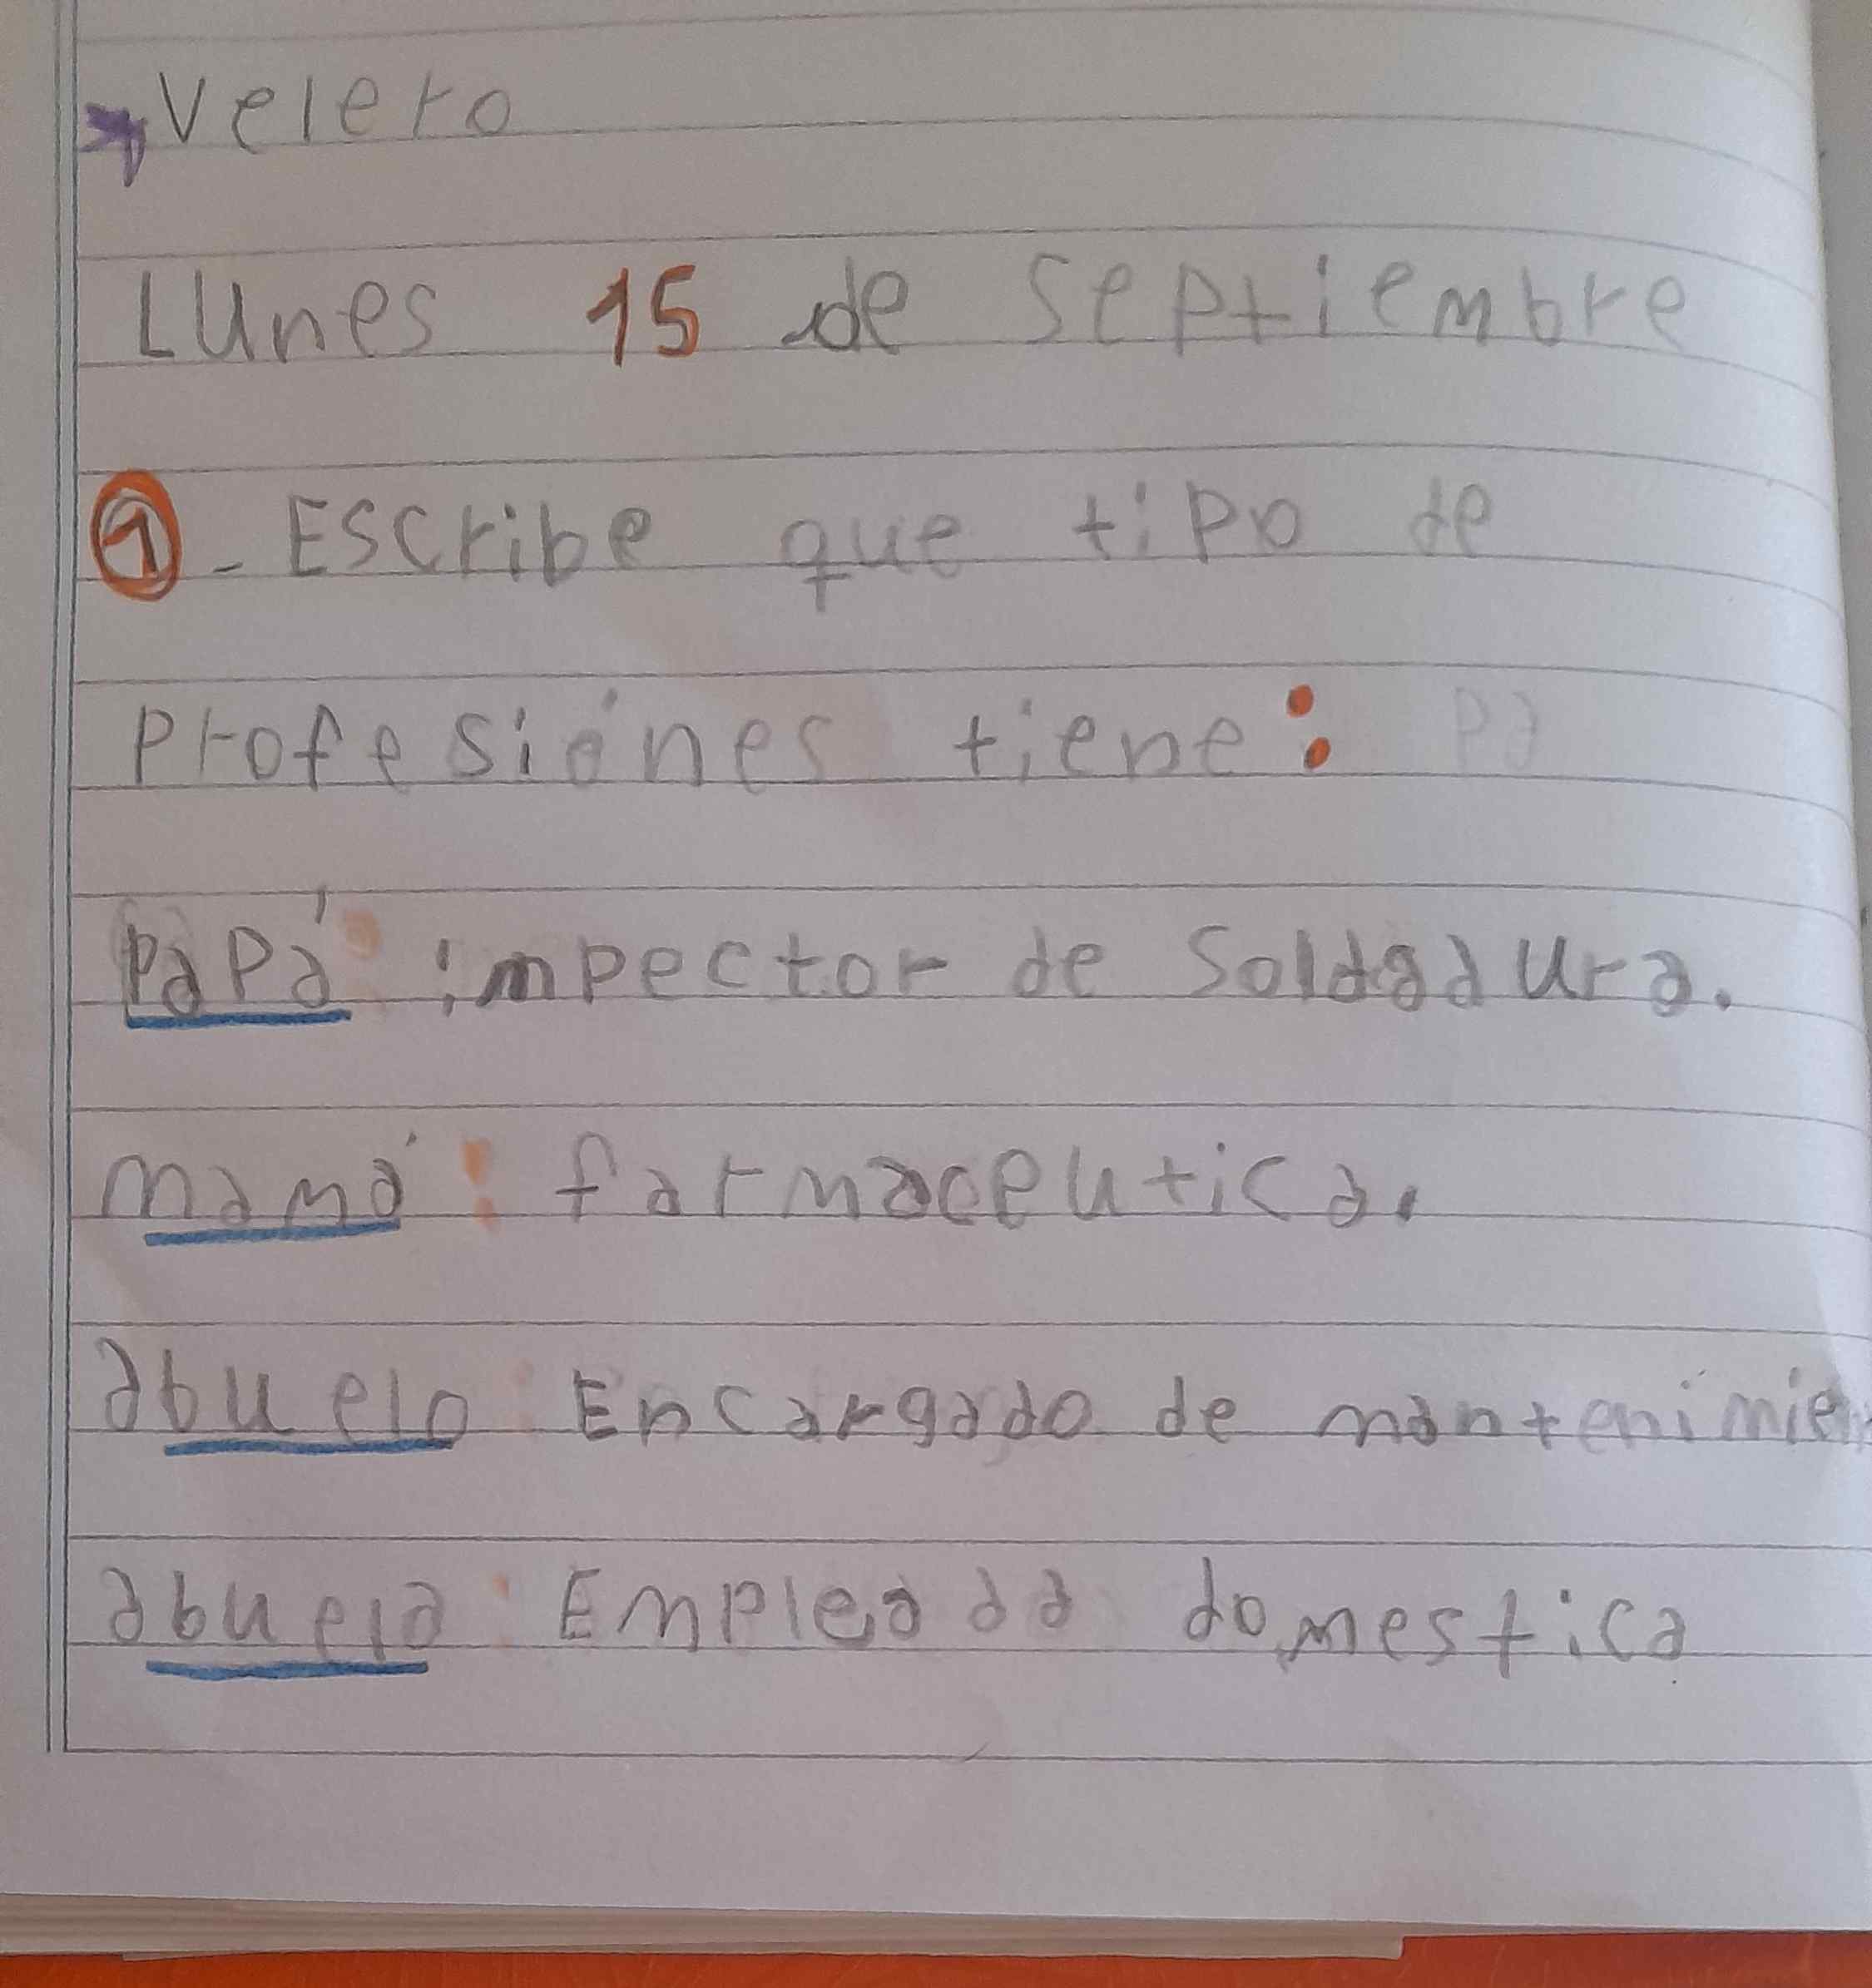 Velero
Lunes 15 de Septiembre
1 - Escribe que tipo de
Profesiónes tiene:
Papá: impector de Soldadura.
mamá: farmaceutica.
abuelo: Encargado de mantenimien
abuela: Empleada domestica